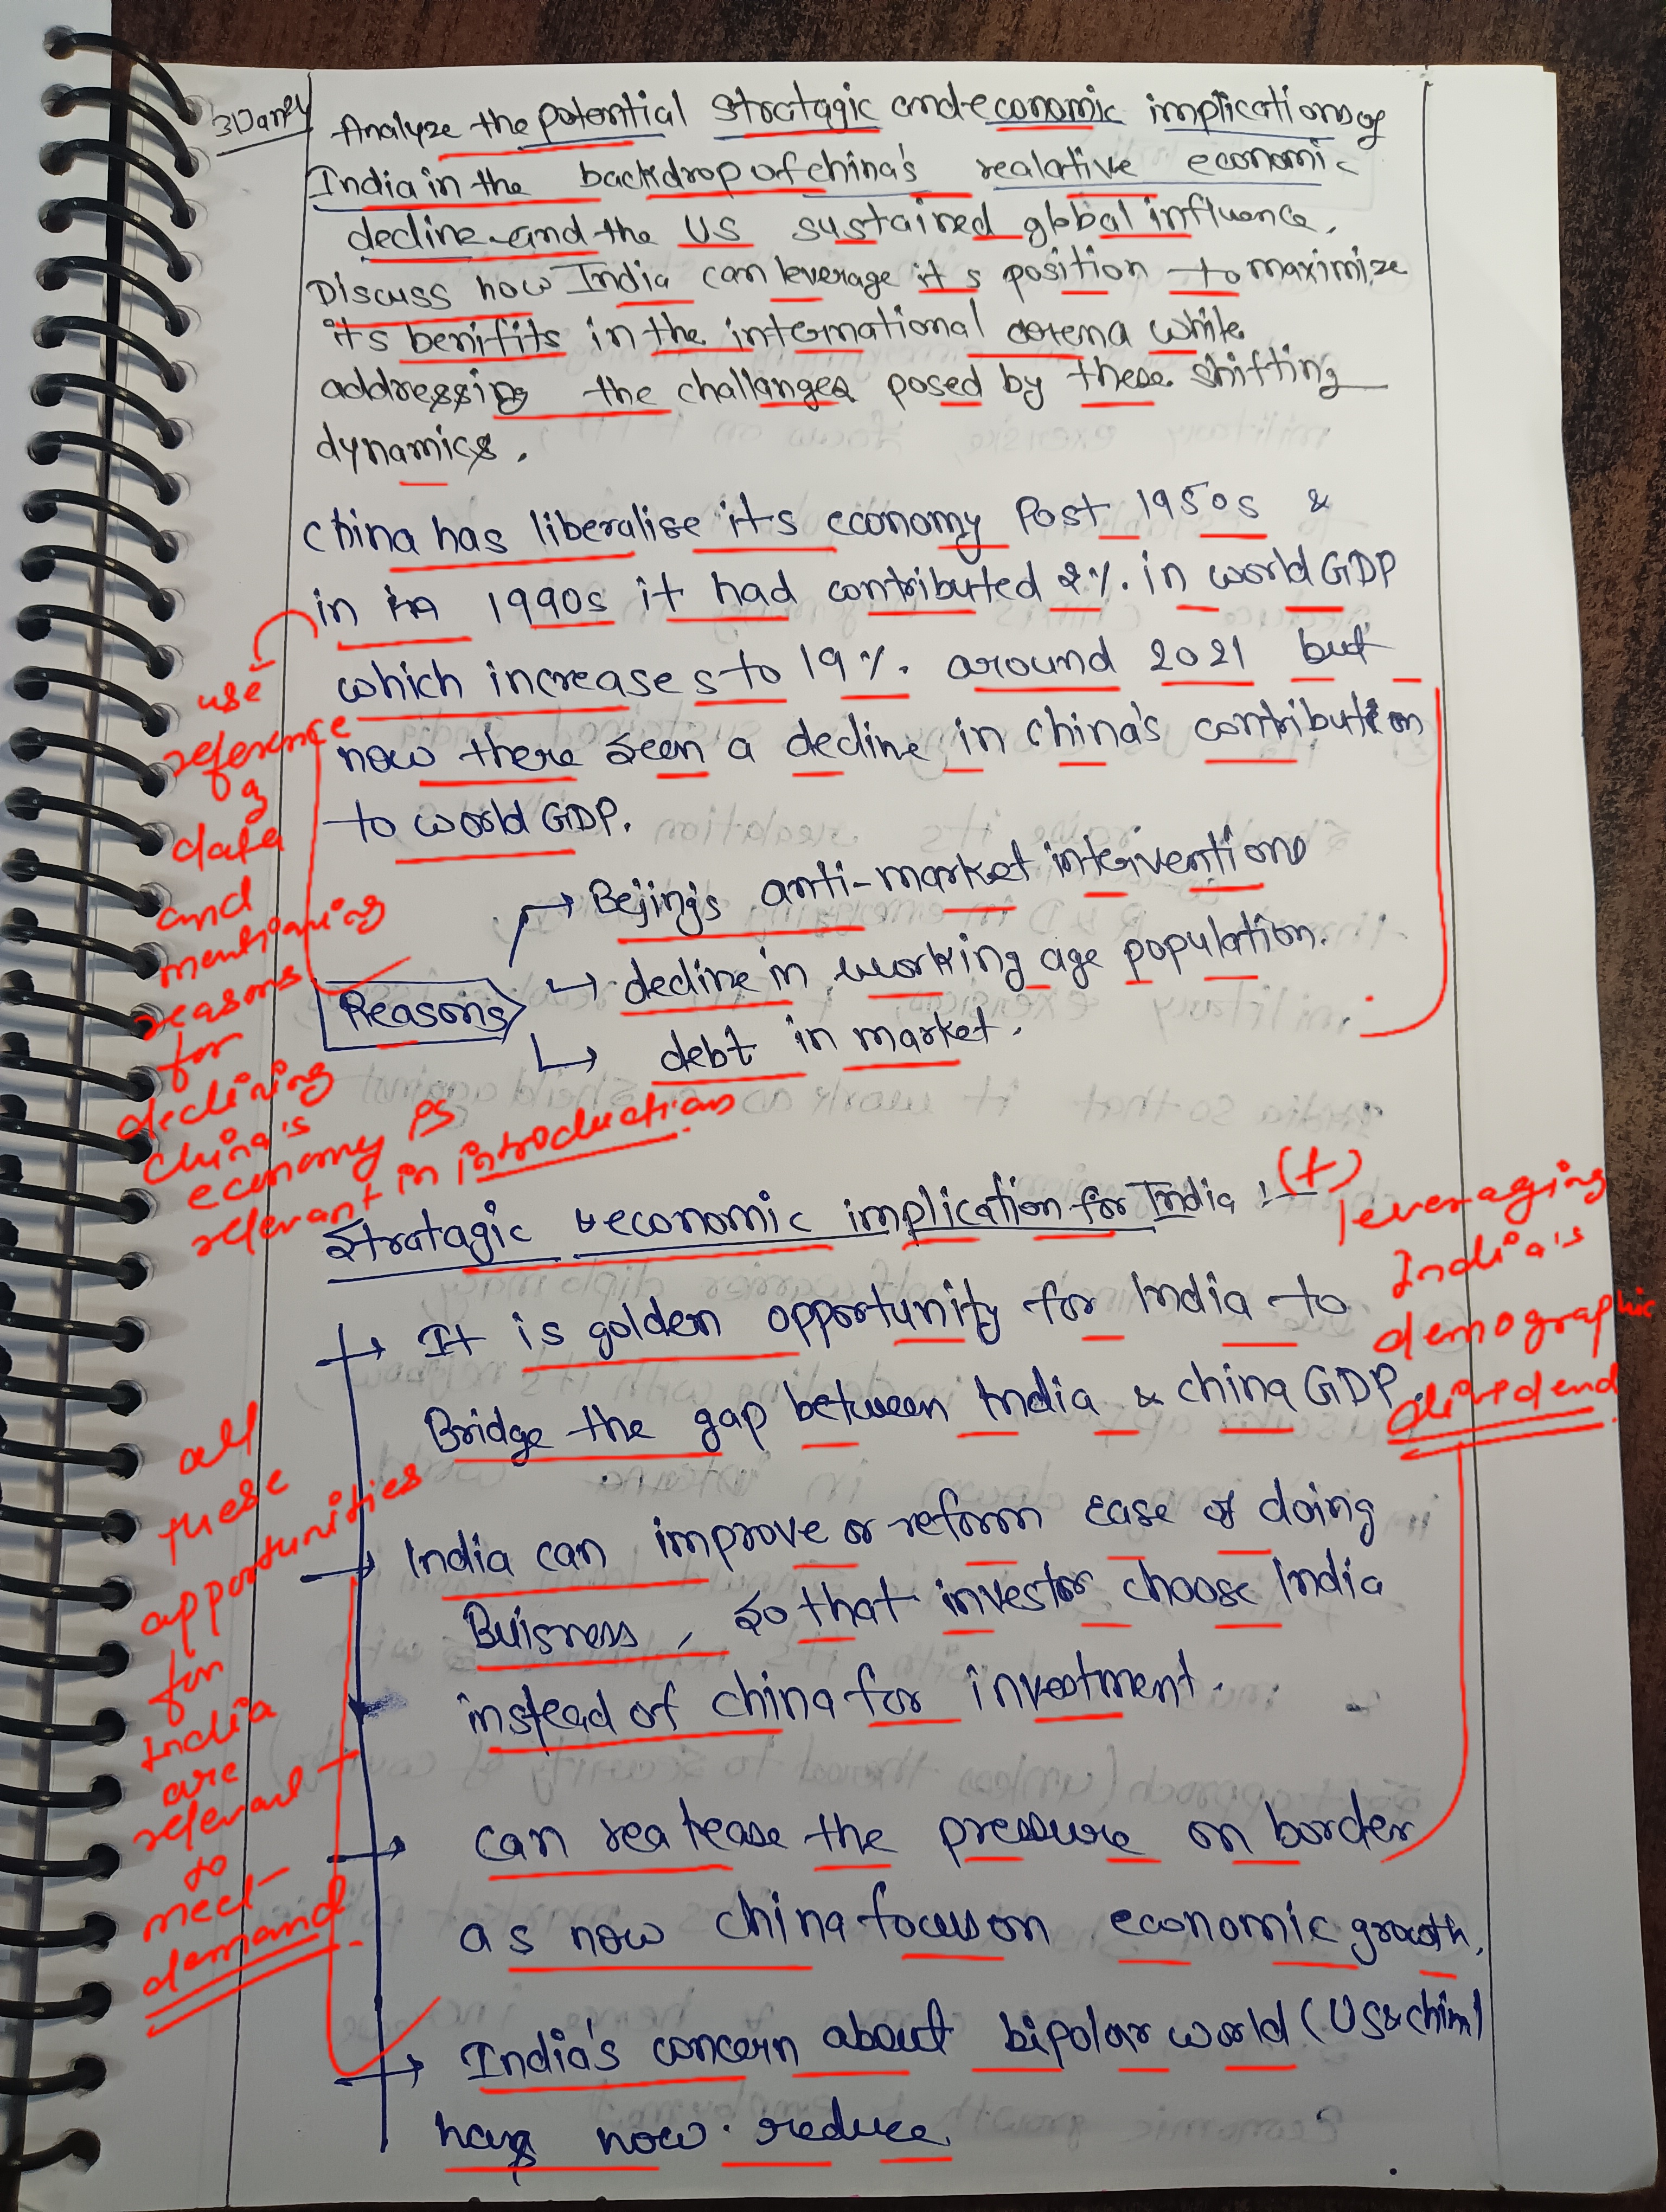 3Jan24
Analyze the potential stratagic and economic implications of
India in the backdrop of china's realative economic
decline and the US sustained global influence.
Discuss how India can leverage it s position to maximize
its benifits in the international arena while
addressing the challanges posed by these shifting
dynamics.
China has liberalise its economy Post 1950s &
in 1990s it had contributed 2%. in world GDP
which increases to 19%. around 2021 but
now there seen a decline in China's contribution
to world GDP.
Reasons
→ Bejing's anti-market interventions
↳ decline in working age population.
↳ debt in market.
use
reference
of
data
and
mentioning
reasons
for
declining
China's
economy is
relevant in introduction.
Stratagic & economic implication for India :-
→ It is golden opportunity for India to
Bridge the gap between India & china GDP.
→ India can improve or reform ease of doing
Buisness, so that investor choose India
instead of china for investment.
→ can the pressure on border
as now china focus on economic growth.
→ India's concern about bipolar world (US & China)
now reduce
(+)
leveraging
India's
demographic
dividend.
all
these
opportunities
for
India
are
relevant
to
meet
demand.